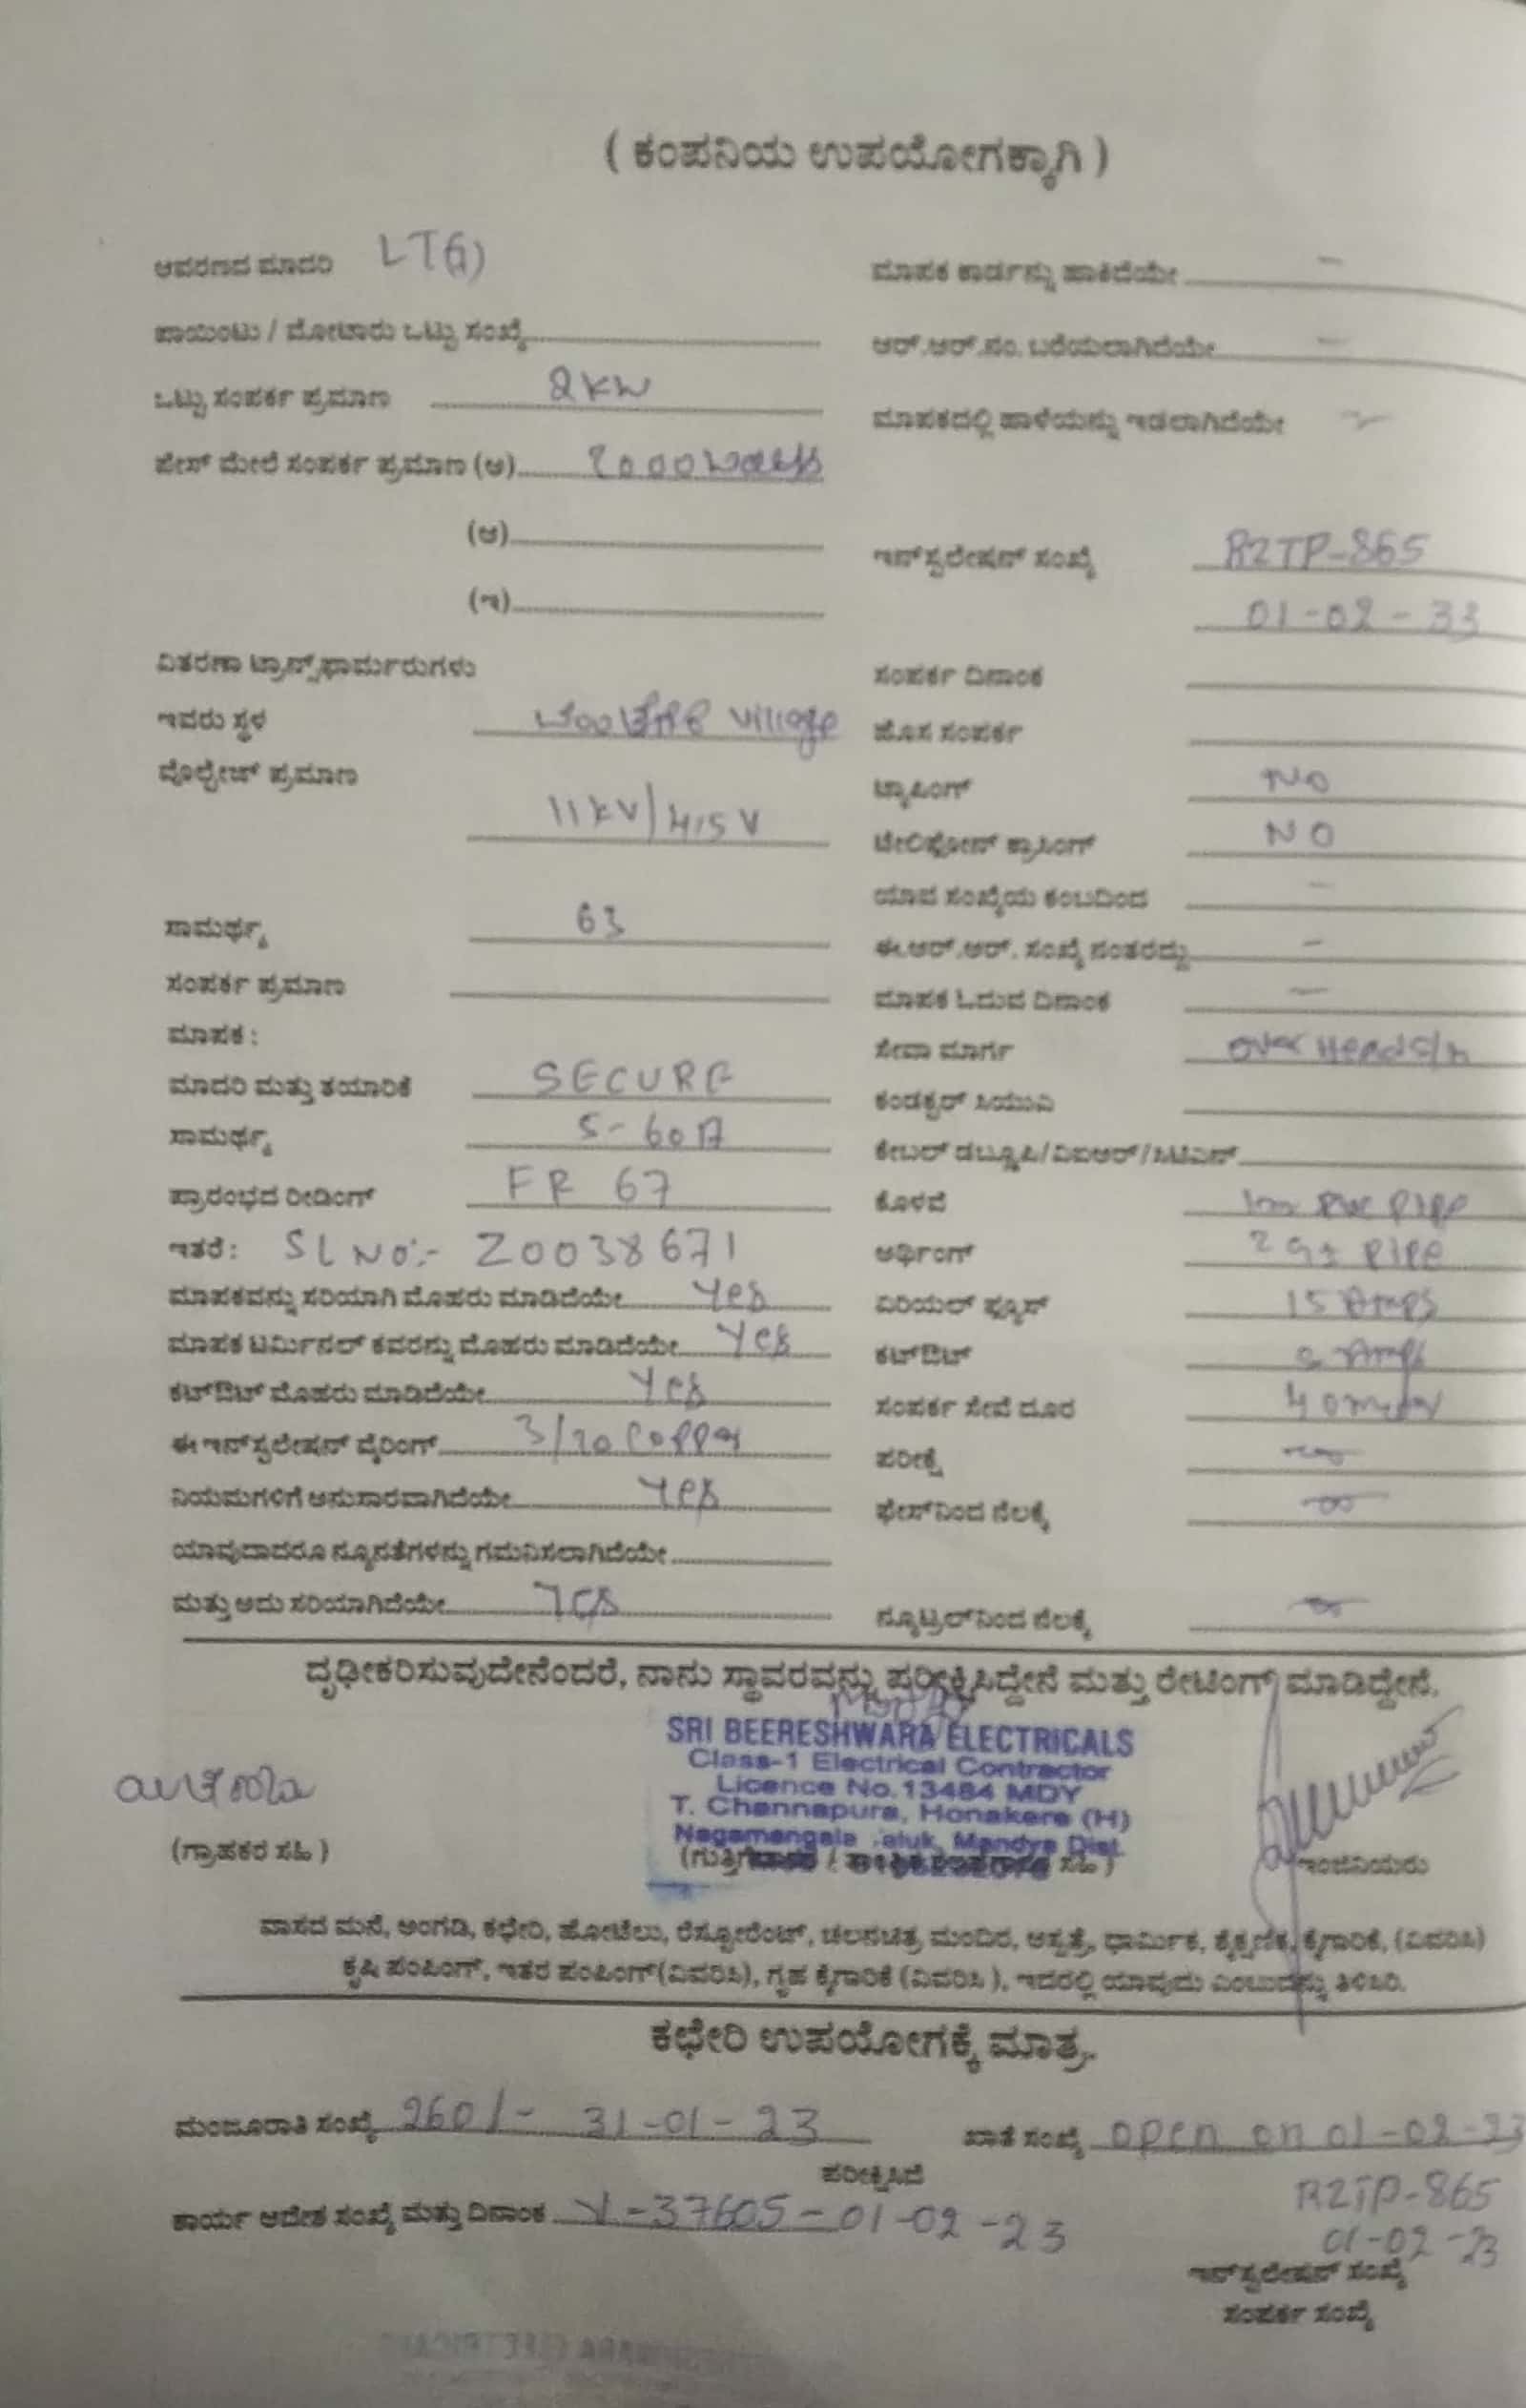 ( ಕಂಪನಿಯ ಉಪಯೋಗಕ್ಕಾಗಿ )
ಆವರಣದ ಮಾದರಿ LT(1)
ಪಾಯಿಂಟು / ಮೋಟಾರು ಒಟ್ಟು ಸಂಖ್ಯೆ
ಒಟ್ಟು ಸಂಪರ್ಕ ಪ್ರಮಾಣ 2KW
ಫೇಸ್ ಮೇಲೆ ಸಂಪರ್ಕ ಪ್ರಮಾಣ (ಅ) 2000watts
(ಆ)
(ಇ)
ವಿತರಣಾ ಟ್ರಾನ್ಸ್‌ಫಾರ್ಮರುಗಳು
ಇವರು ಸ್ಥಳ Village
ವೊಲ್ಟೇಜ್ ಪ್ರಮಾಣ
11KV/415V
ಸಾಮರ್ಥ್ಯ 63
ಸಂಪರ್ಕ ಪ್ರಮಾಣ
ಮಾಪಕ :
ಮಾದರಿ ಮತ್ತು ತಯಾರಿಕೆ SECURE
ಸಾಮರ್ಥ್ಯ 5-60A
ಪ್ರಾರಂಭದ ರೀಡಿಂಗ್ FR 67
ಇತರೆ : SL NO:- Z0038671
ಮಾಪಕವನ್ನು ಸರಿಯಾಗಿ ಮೊಹರು ಮಾಡಿದೆಯೇ Yes
ಮಾಪಕ ಟರ್ಮಿನಲ್ ಕವರನ್ನು ಮೊಹರು ಮಾಡಿದೆಯೇ Yes
ಕಟ್‌ಔಟ್ ಮೊಹರು ಮಾಡಿದೆಯೇ Yes
ಈ ಇನ್‌ಸ್ಟಲೇಷನ್ ವೈರಿಂಗ್ 3/20 Copper
ನಿಯಮಗಳಿಗೆ ಅನುಸಾರವಾಗಿದೆಯೇ Yes
ಯಾವುದಾದರೂ ನ್ಯೂನತೆಗಳನ್ನು ಗಮನಿಸಲಾಗಿದೆಯೇ
ಮತ್ತು ಅದು ಸರಿಯಾಗಿದೆಯೇ Yes
ಮಾಪಕ ಕಾರ್ಡನ್ನು ಹಾಕಿದೆಯೇ -
ಆರ್.ಆರ್.ನಂ. ಬರೆಯಲಾಗಿದೆಯೇ -
ಮಾಪಕದಲ್ಲಿ ಹಾಳೆಯನ್ನು ಇಡಲಾಗಿದೆಯೇ
ಇನ್‌ಸ್ಟಲೇಷನ್ ಸಂಖ್ಯೆ BZTP-865
01-02-33
ಸಂಪರ್ಕ ದಿನಾಂಕ
ಹೊಸ ಸಂಪರ್ಕ
ಟ್ಯಾಪಿಂಗ್ NO
ಟೇಲಿಫೋನ್ ಕ್ರಾಸಿಂಗ್ NO
ಯಾವ ಸಂಖ್ಯೆಯ ಕಂಬದಿಂದ -
ಈ.ಆರ್.ಆರ್. ಸಂಖ್ಯೆ ನಂತರದ್ದು -
ಮಾಪಕ ಓದುವ ದಿನಾಂಕ -
ಸೇವಾ ಮಾರ್ಗ over Head
ಕಂಡಕ್ಟರ್ ಸಿಯುವಿ
ಕೇಬಲ್ ಡಬ್ಲ್ಯೂಪಿ/ವಿಐಆರ್/ಸಿಟಿಎಸ್
ಕೊಳವೆ PVC PIPE
ಅರ್ಥಿಂಗ್ PIPE
ಏರಿಯಲ್ ಫ್ಯೂಸ್ 15 Amps
ಕಟ್‌ಔಟ್ Amps
ಸಂಪರ್ಕ ಸೇವೆ ದೂರ
ಪರೀಕ್ಷೆ
ಫೇಸ್‌ನಿಂದ ನೆಲಕ್ಕೆ
ನ್ಯೂಟ್ರಲ್‌ನಿಂದ ನೆಲಕ್ಕೆ
ದೃಢೀಕರಿಸುವುದೇನೆಂದರೆ, ನಾನು ಸ್ಥಾವರವನ್ನು ಪರೀಕ್ಷಿಸಿದ್ದೇನೆ ಮತ್ತು ರೇಟಿಂಗ್ ಮಾಡಿದ್ದೇನೆ.
SRI BEERESHWARA ELECTRICALS
Class-1 Electrical Contractor
Licence No.13484 MDY
T. Channapura, Honakere (H)
Nagamangala Taluk, Mandya Dist.
(ಗ್ರಾಹಕರ ಸಹಿ) ಸಹಿ ) ಇಂಜಿನಿಯರು
ವಾಸದ ಮನೆ, ಅಂಗಡಿ, ಕಛೇರಿ, ಹೋಟೆಲು, ರೆಸ್ಟೋರೆಂಟ್, ಚಲನಚಿತ್ರ ಮಂದಿರ, ಆಸ್ಪತ್ರೆ, ಧಾರ್ಮಿಕ, ಶೈಕ್ಷಣಿಕ, ಕೈಗಾರಿಕೆ, (ವಿವರಿಸಿ)
ಕೃಷಿ ಪಂಪಿಂಗ್, ಇತರ ಪಂಪಿಂಗ್(ವಿವರಿಸಿ), ಗೃಹ ಕೈಗಾರಿಕೆ (ವಿವರಿಸಿ ), ಇದರಲ್ಲಿ ಯಾವುದು ಎಂಬುದನ್ನು ತಿಳಿಸಿರಿ.
ಕಛೇರಿ ಉಪಯೋಗಕ್ಕೆ ಮಾತ್ರ.
ಮಂಜೂರಾತಿ ಸಂಖ್ಯೆ 260/- 31-01-23 ಖಾತೆ ಸಂಖ್ಯೆ open on 01-02-23
ಪರೀಕ್ಷಿಸಿದೆ
ಕಾರ್ಯ ಆದೇಶ ಸಂಖ್ಯೆ ಮತ್ತು ದಿನಾಂಕ V-37605-01-02-23
BZTP-865
01-02-23
ಇನ್‌ಸ್ಟಲೇಷನ್ ಸಂಖ್ಯೆ
ಸಂಪರ್ಕ ಸಂಖ್ಯೆ